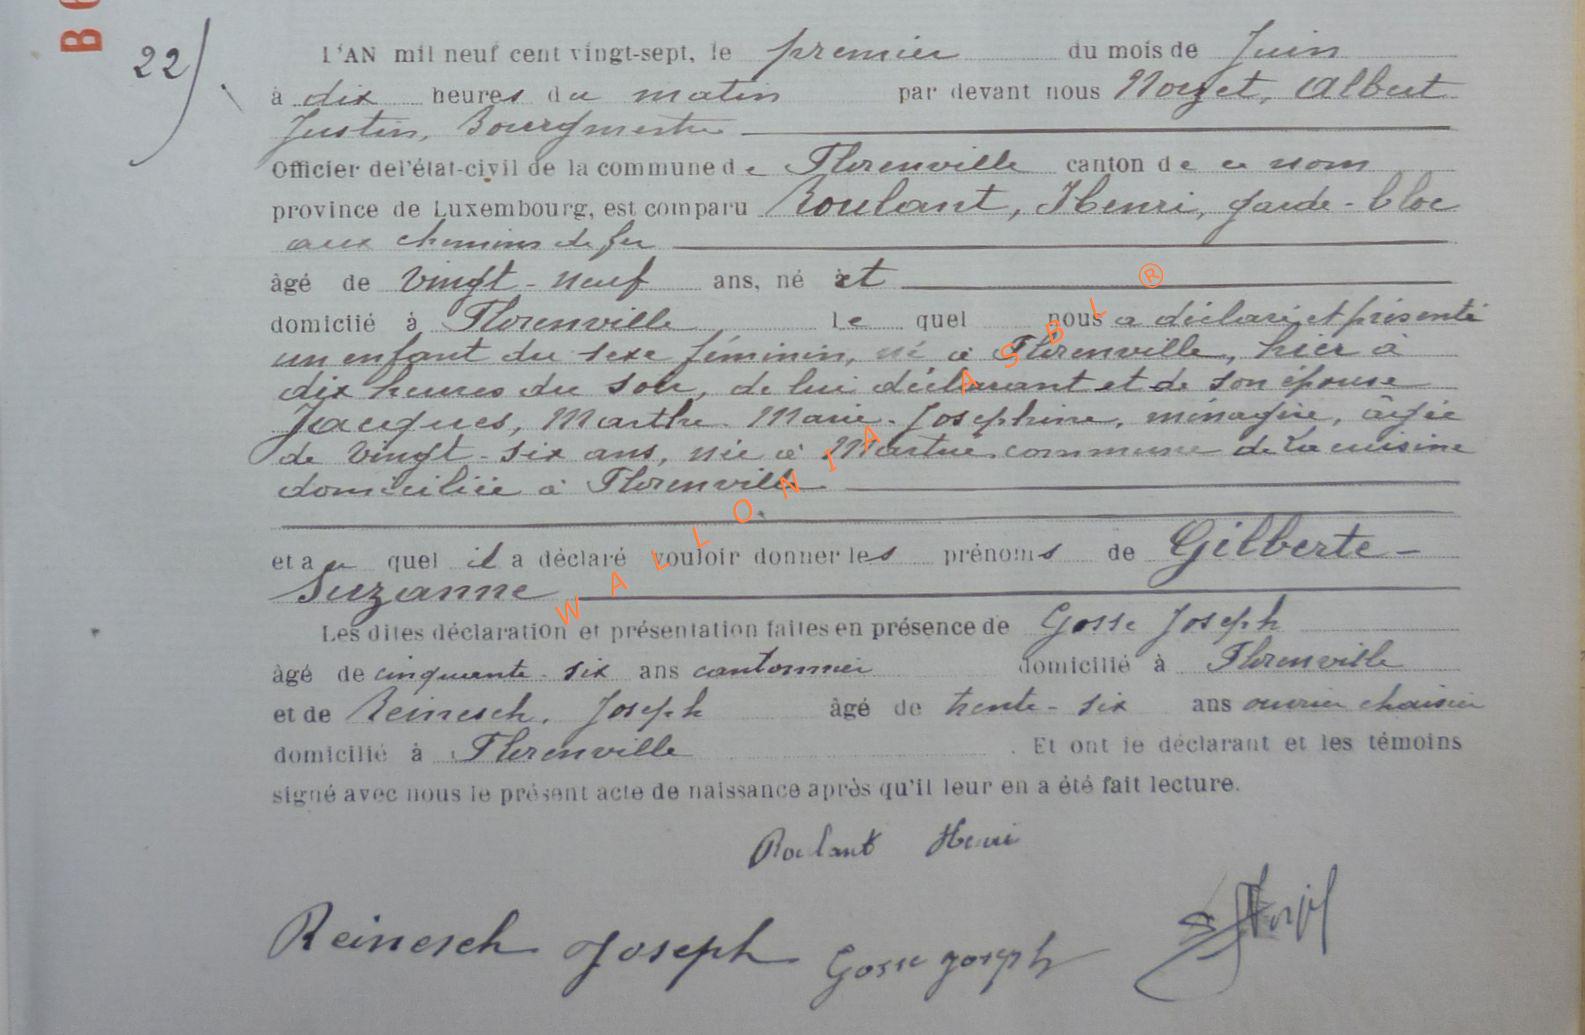 B6
22)
L'AN mil neuf cent vingt-sept, le premier du mois de Juin
à dix heures du matin par devant nous Noyet, Albert
Justin, Bourgmestre
Officier de l'état-civil de la commune de Florenville canton de ce nom
province de Luxembourg, est comparu Roulant, Henri, garde-bloc
aux chemins de fer
âgé de vingt-neuf ans, né et
domicilié à Florenville lequel nous a déclaré et présenté
un enfant du sexe féminin, né à Florenville, hier à
dix heures du soir, de lui déclarant et de son épouse
Jacques, Marthe-Marie-Joséphine, ménagère, âgée
de vingt-six ans, née à Martué commune de Lacuisine
domiciliée à Florenville
et au quel il a déclaré vouloir donner les prénoms de Gilberte-
Suzanne
Les dites déclaration et présentation faites en présence de Gosse Joseph
âgé de cinquante-six ans cantonnier domicilié à Florenville
et de Reinesch, Joseph âgé de trente-six ans ouvrier chaisier
domicilié à Florenville. Et ont le déclarant et les témoins
signé avec nous le présent acte de naissance après qu'il leur en a été fait lecture.
Roulant Henri
Reinesch Joseph Gosse Joseph
WALLONIA ASBL ®